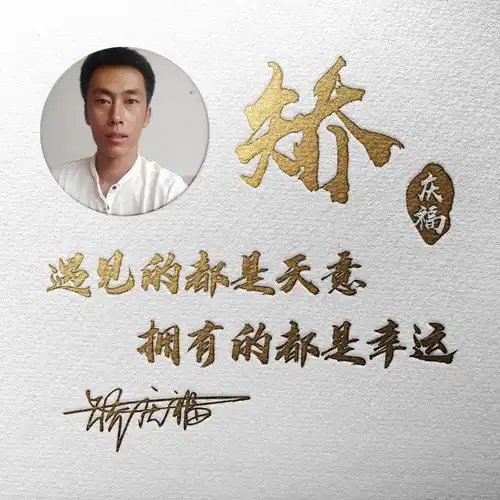 矫
庆福
遇见的都是天意
拥有的都是幸运
矫庆福